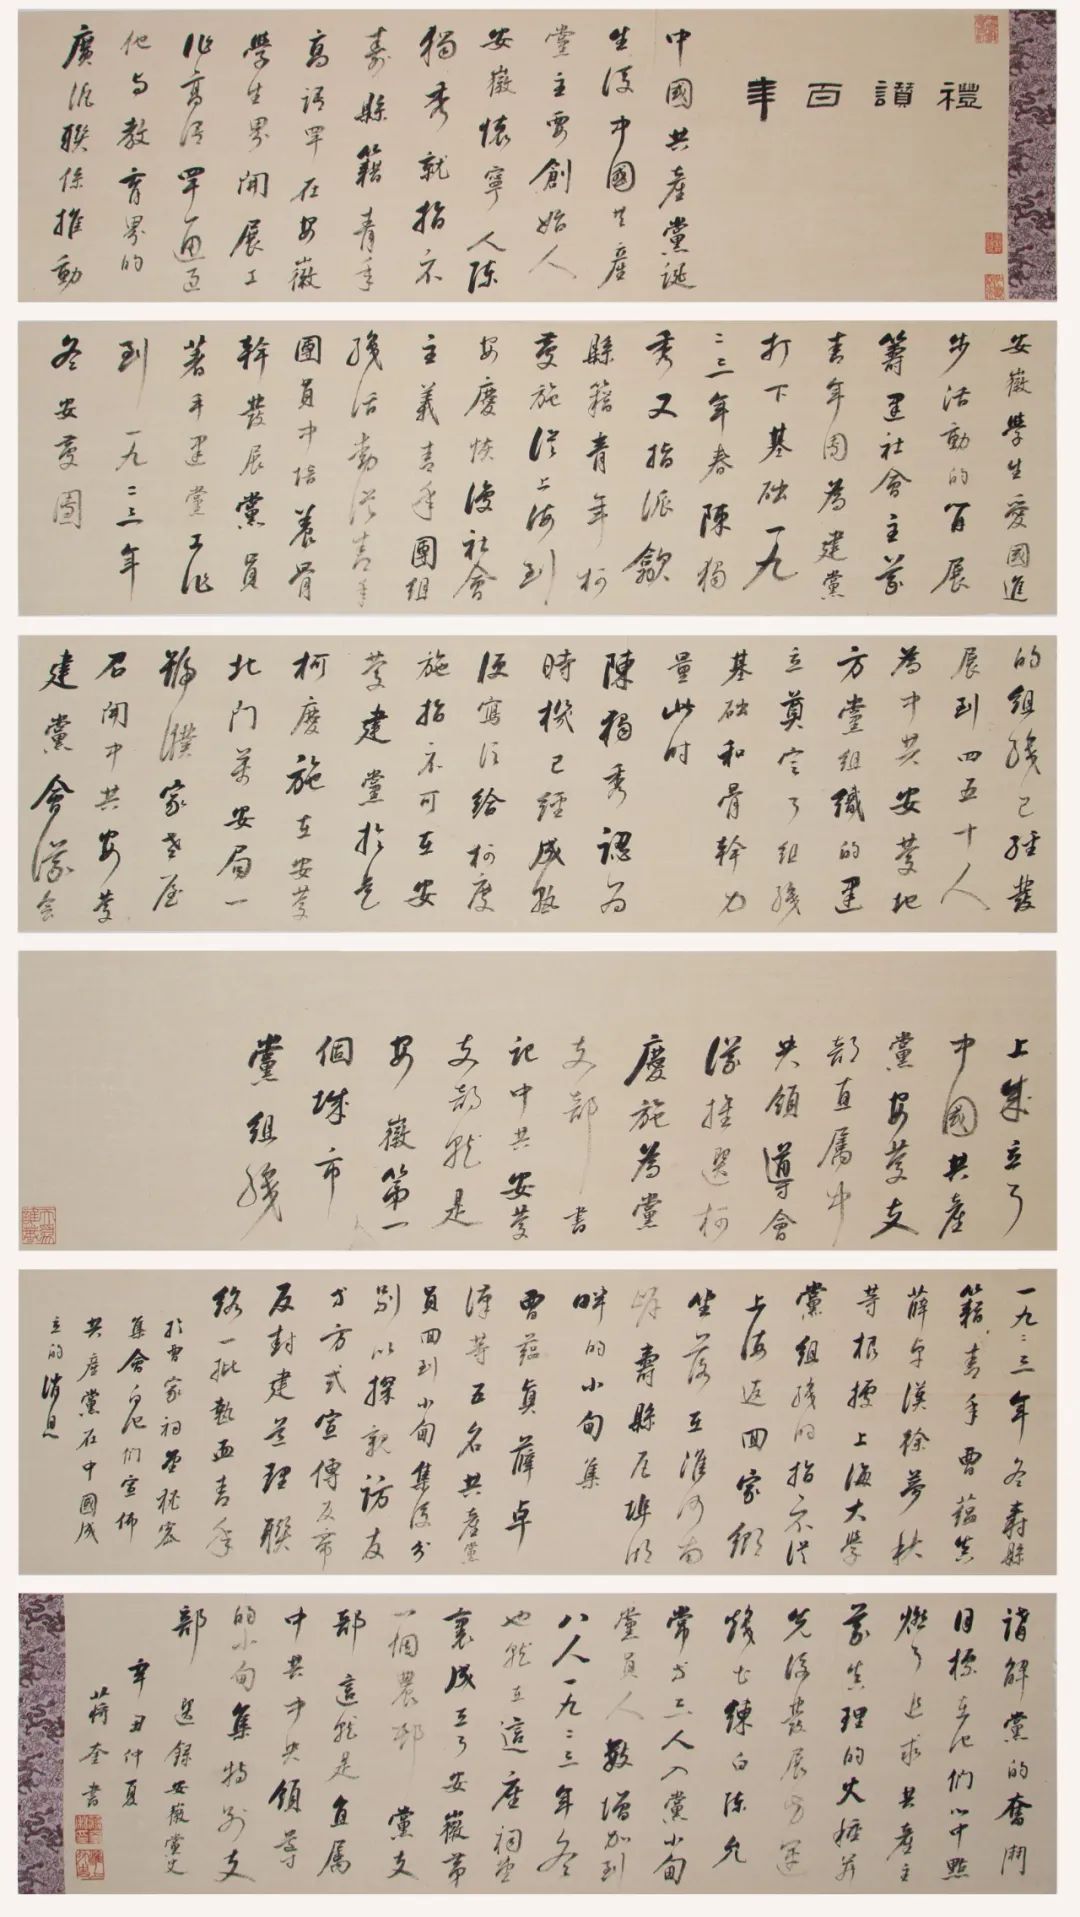 禮讚百年
中國共產黨誕
生後中國共產
黨主要創始人
安徽懷寧人陳
獨秀就指示
壽縣籍青年
高語罕在安徽
學生界開展工
作高語罕通過
他與教育界的
廣泛聯係推動
安徽學生愛國進
步活動的開展
籌建社會主義
青年團為建黨
打下基础一九
二三年春陳獨
秀又指派歙
縣籍青年柯
慶施從上海到
安慶恢復社會
主義青年團組
織活動從青年
團員中培養骨
幹發展黨員
著手建黨工作
到一九二三年
冬安慶團
的組織已經發
展到四五十人
為中共安慶地
方黨組織的建
立奠定了組織
基础和骨幹力
量此时
陳獨秀認为
時機已經成熟
便寫信給柯慶
施指示可在安
慶建黨於是
柯慶施在安慶
北门萬安局一
號濮家老屋
召開中共安慶
建黨會議会
上成立了
中國共產
黨安慶支
部直属中
央領導會
議推選柯
慶施為黨
支部書
記中共安慶
支部就是
安徽第一
個城市
黨組織
一九二三年冬壽縣
籍青年曹蕴真
薛卓漢徐夢秋
等根據上海大學
黨組織的指示從
上海返回家鄉
坐落在淮河南
岸壽縣瓦埠湖
畔的小甸集
曹蕴真薛卓
漢等五名共產黨
員回到小甸集後分
别以探親访友
方式宣傳反帝
反封建道理聯
络一批熱血青年
於曹家祠堂秘密
集會向他們宣佈
共產黨在中國成
立的消息
講解黨的奮鬥
目標在他們心中點
燃了追求共產主
義真理的火種并
先後發展方運
炽七練白陈允
常等三人入黨小甸
黨員人数增加到
八人一九二三年冬
也就在這座祠堂
裏成立了安徽第
一個農邨黨支
部這就是直属
中共中央領導
的小甸集特别支
部 選錄安徽黨史
辛丑仲夏
荷奎書